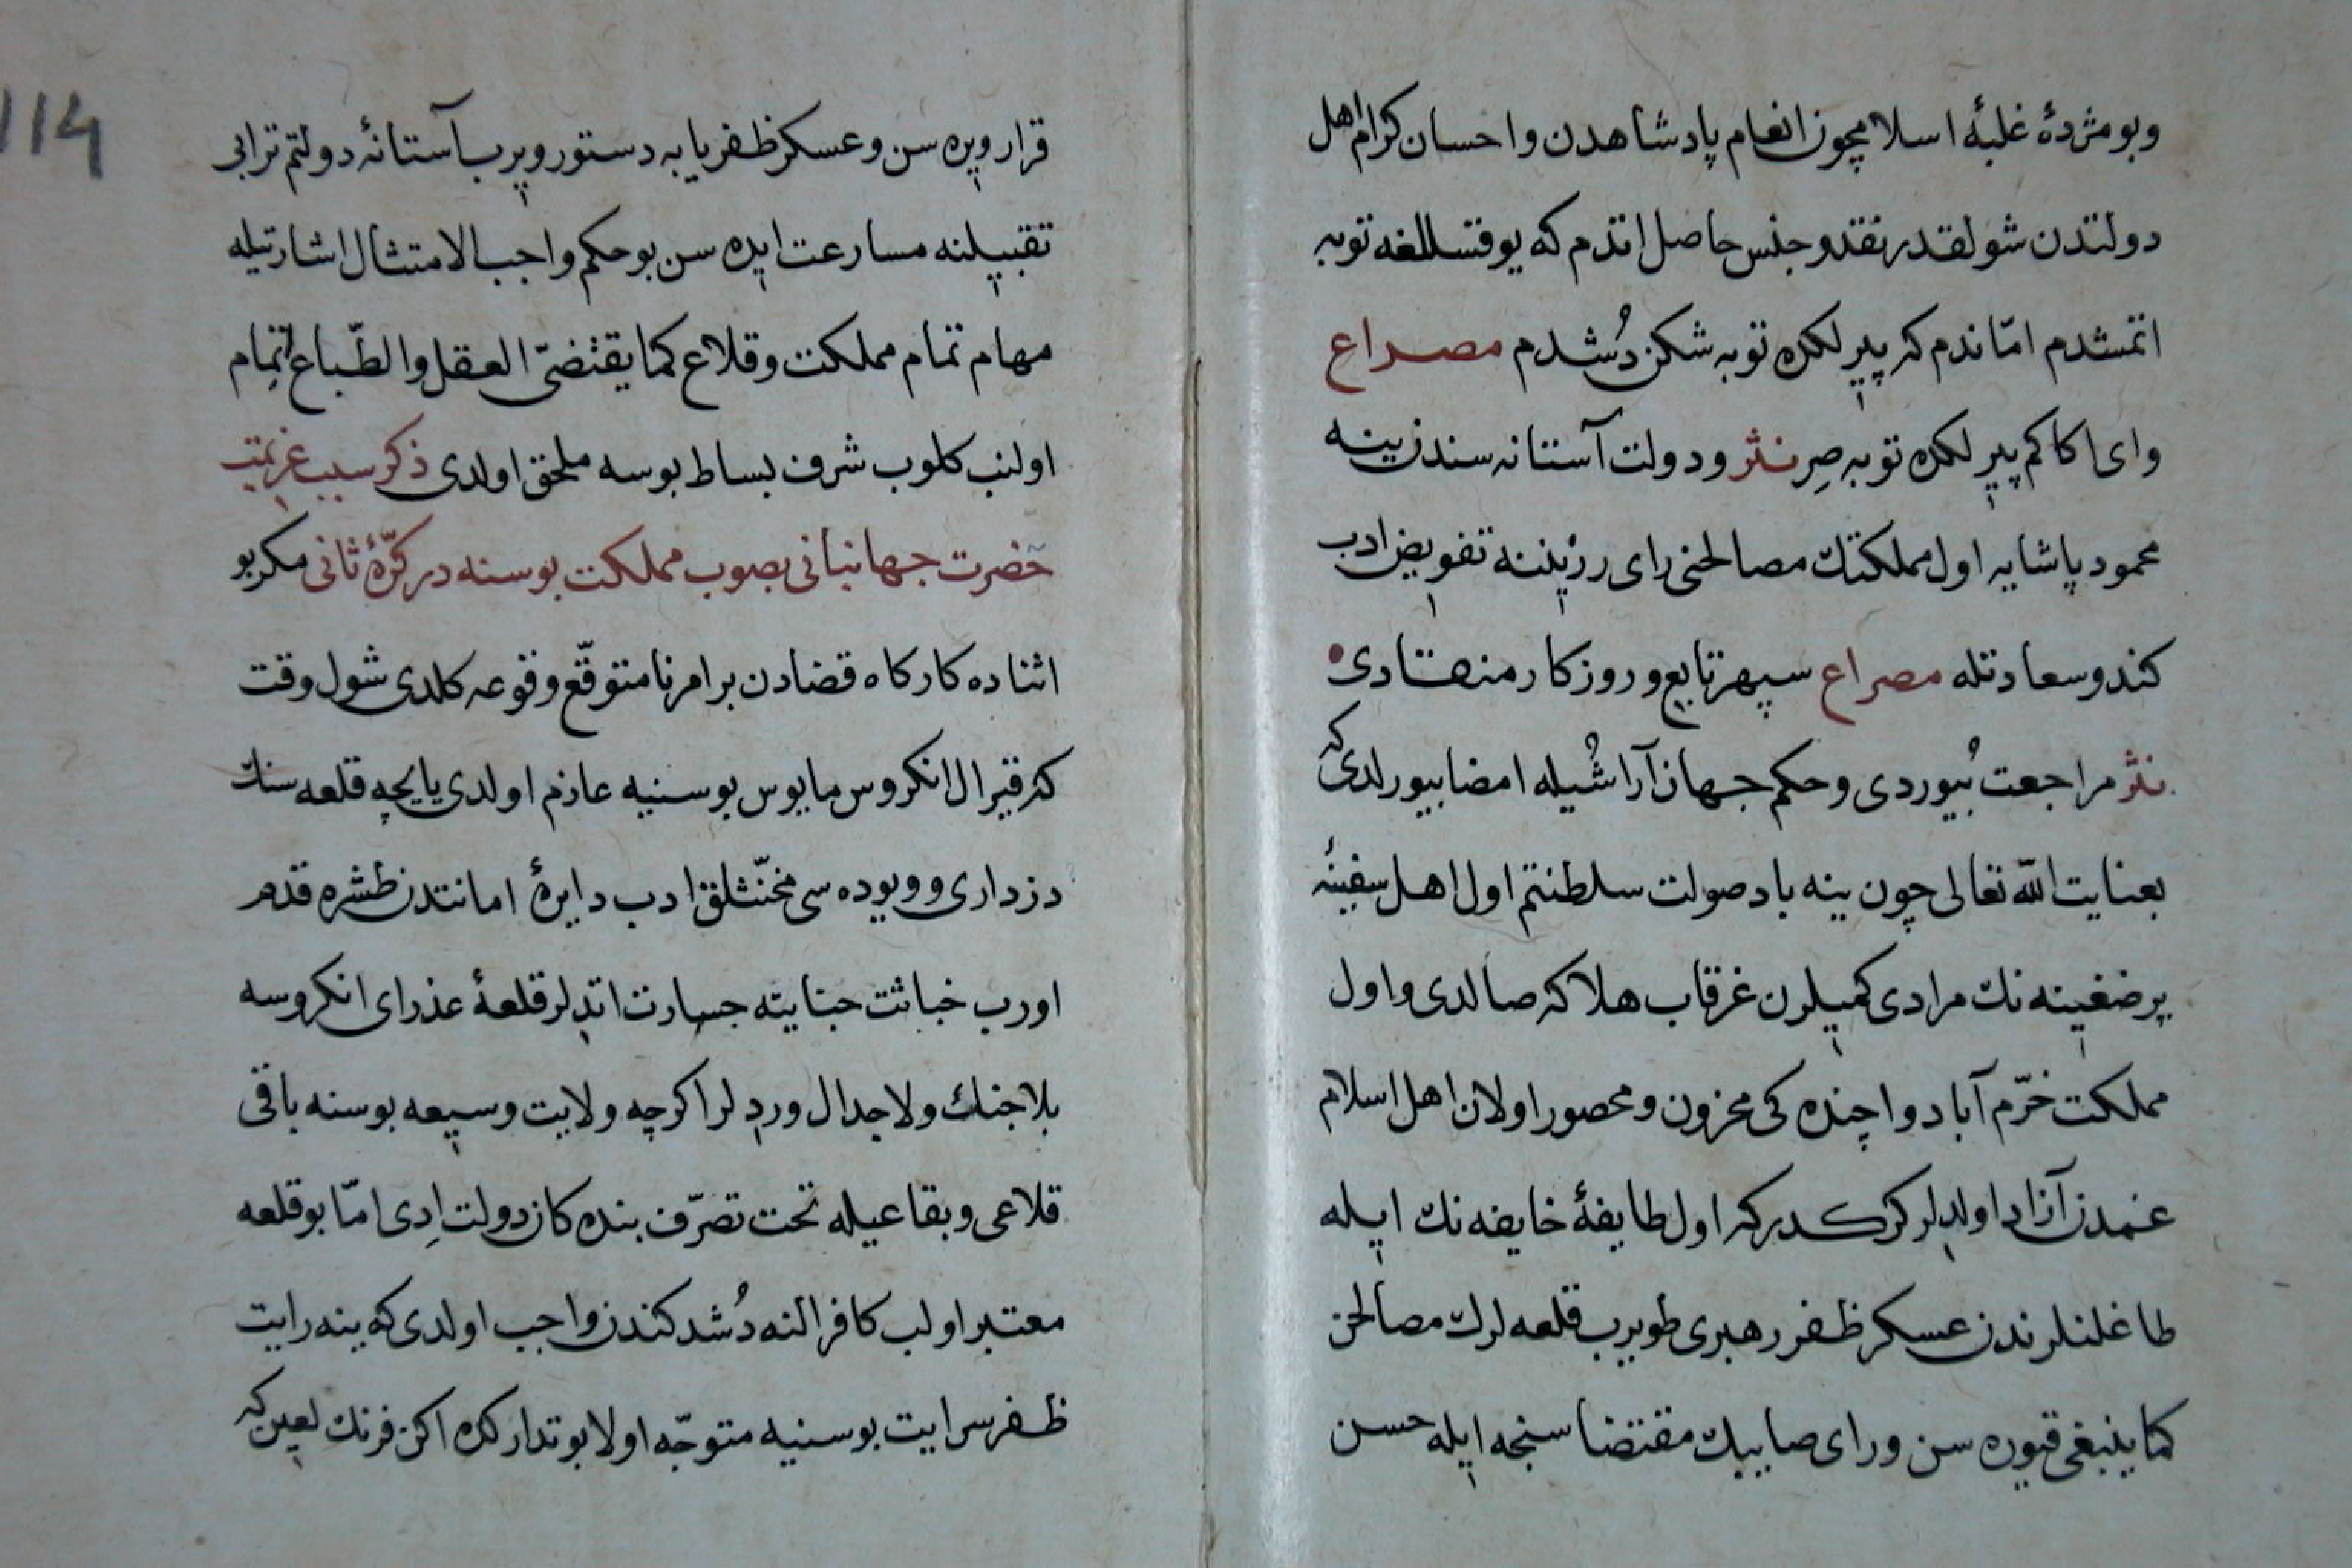 وبو مژدهٔ غلبهٔ اسلامچون انعام پادشاهدن واحسان کرام اهل
دولتدن شولقدر نقد و جنس حاصل اتدم که یوقسللغه توبه
اتمشدم امّا ندم که پیرلکده توبه شکن دُشدم مصراع
وای اکا کم پیرلکده توبه صِر نثر ودولت آستانه سندن ینه
محمود پاشایه اول مملکتك مصالحنی رای رزیننه تفویض ادب
کندو سعادتله مصراع سپهر تابع و روزکار منقادی
نثر مراجعت بُیوردی وحکم جهان آراشُیله امضا بیورلدی که
بعنایت اللّه تعالی چون ینه باد صولت سلطنتم اول اهل سفینهٔ
پرضغینه نك مرادی کمیلرن غرقاب هلاکه صالدی واول
مملکت خرّم آباد و اچنده کی محزون ومحصور اولان اهل اسلام
غمدن آزاد اولدلر کرکدر که اول طایفهٔ خایفه نك ایله
طاغلنلرندن عسکر ظفر رهبری طویرب قلعه لرك مصالحن
کما ینبغی قیوره سن ورای صایبك مقتضاسنجه ایله حسن
114
قرار ویره سن وعسکر ظفریابه دستور ویرب آستانهٔ دولتم ترابی
تقبیلنه مسارعت ایده سن بوحکم واجب الامتثال اشارتیله
مهام تمام مملکت وقلاع کما یقتضیّ العقل والطّباع اتمام
اولنب کلوب شرف بساط بوسه ملحق اولدی ذکر سبب عزیمت
حضرت جهانبانی بصوب مملکت بوسنه در کرّهٔ ثانی مکر بو
اثناده کارکاه قضادن بر امر نامتوقّع وقوعه کلدی شول وقت
که قیرال انکروس مایوس بوسنیه عازم اولدی یایچه قلعه سنك
دزداری وویوده سی مخنّثلق ادب دایرهٔ امانتدن طشره قدم
اورب خباثت جنایته جسارت اتدلر قلعهٔ عذرای انکروسه
بلاجنك ولاجدال وردلر اکرچه ولایت وسیعه بوسنه باقی
قلاعی وبقاعیله تحت تصرّف بندکان دولت اِدی امّا بوقلعه
معتبر اولب کافر النه دُشدکندن واجب اولدی که ینه رایت
ظفر سرایت بوسنیه متوجّه اولا بو تدارکده اکن فرنك لعین که